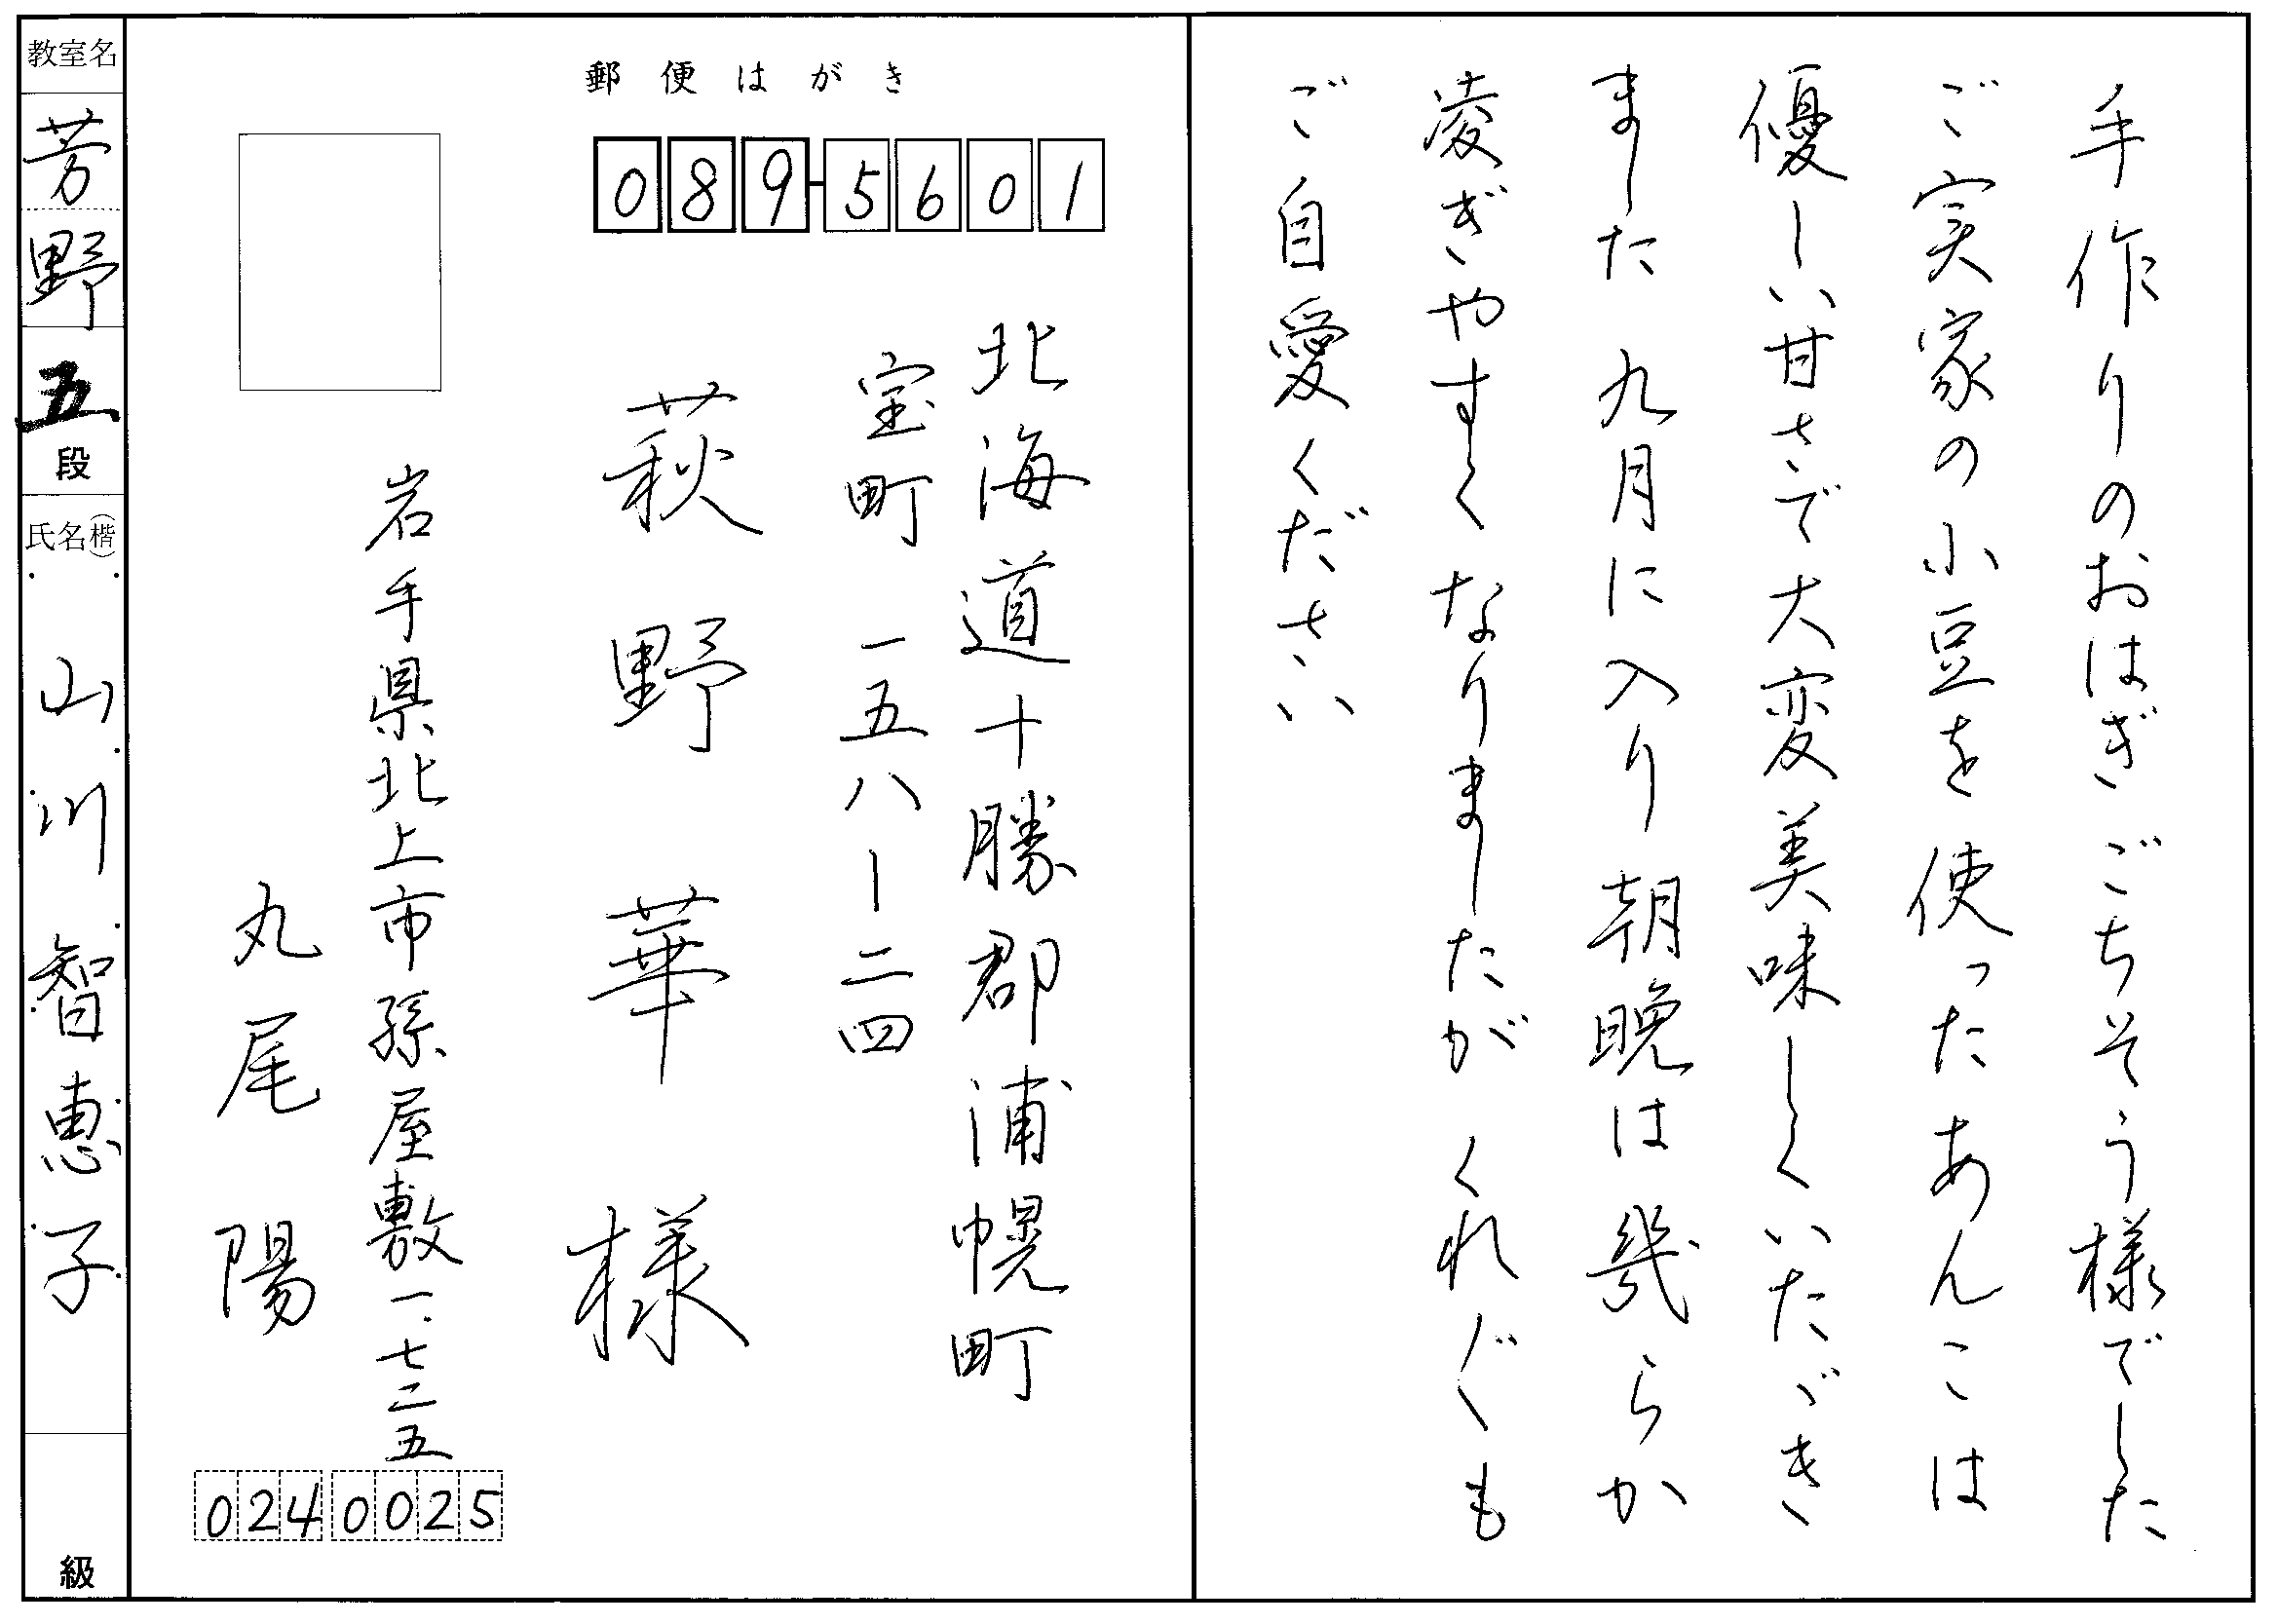 手作りのおはぎごちそう様でした
ご実家の小豆を使ったあんこは
優しい甘さで大変美味しくいただき
ました 九月に入り朝晩は幾らか
凌ぎやすくなりましたがくれぐも
ご自愛ください
郵便はがき
089-5601
北海道十勝郡浦幌町
宝町 一五八ー二四
萩野 華 様
岩手県北上市孫屋敷一.七二五
丸尾 陽
024 0025
教室名
芳野
五段
氏名(楷)
山川智恵子
級